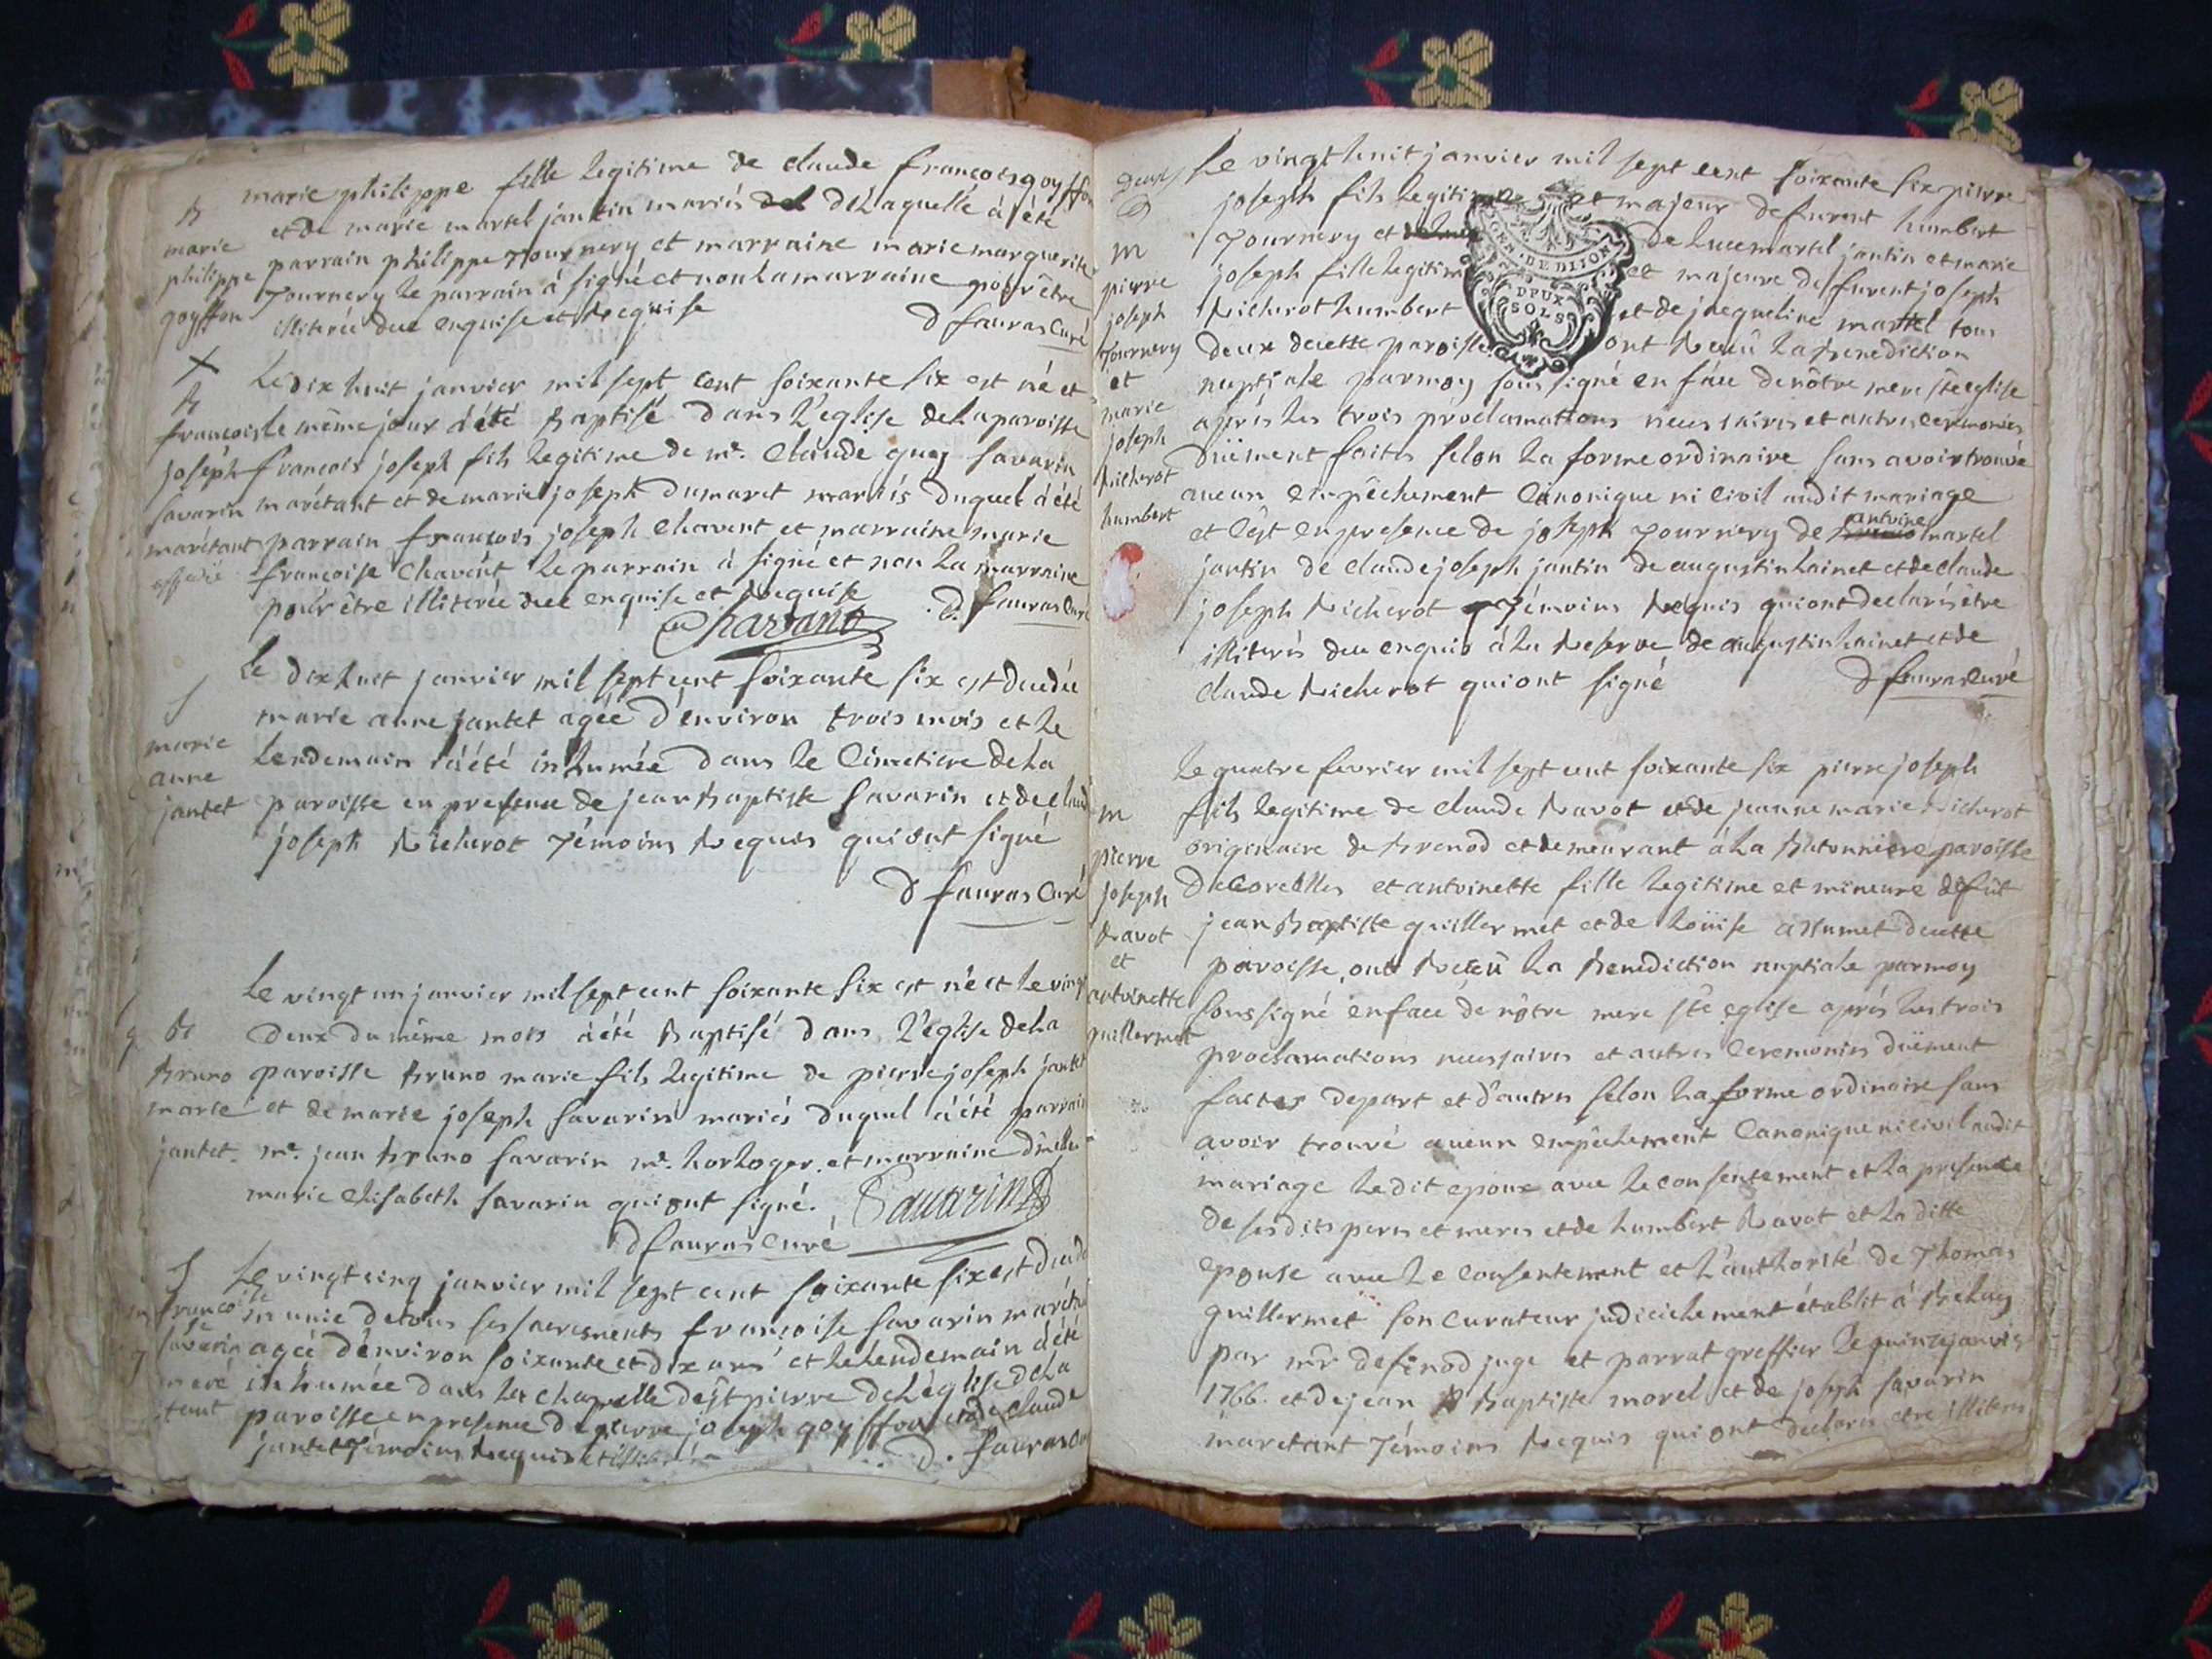 B
marie
philippe
goyffon
marie philippe fille legitime de claude francois goyffon
et de marie martel jantin mariés de laquelle à été
parrain philippe Tournery et marraine marie marguerite
Tournery le parrain à signé et non la marraine pour être
illiterée due enquise et Requise
D fauras Curé
B
francois
joseph
savarin
marétant
Le dix huit janvier mil sept cent soixante six est né et
le même jour à été Baptisé dans l'église de la paroisse
francois joseph fils legitime de me. Claude guay savarin
marétant et de marie joseph dumaret mariés duquel à été
parrain francois joseph Chavent et marraine marie
francoise Chavent le parrain à signé et non la marraine
pour être illiterée due enquise et Requise
D. fauras Curé
S
marie
anne
jantet
Le dix huit janvier mil sept cent soixante six est decedée
marie anne jantet agée d'environ trois mois et le
lendemain à été inhumée dans le Cimetiere de la
paroisse en presence de jean Baptiste savarin et de claude
joseph Richerot Témoins Requis qui ont signé
D fauras Curé
B
Bruno
marie
jantet
Le vingt un janvier mil sept cent soixante six est né et le vingt
deux du même mois à été Baptisé dans l'église de la
paroisse Bruno marie fils legitime de pierre joseph jantet
et de marie joseph savarin mariés duquel à été parrain
me. jean Bruno savarin me. horloger et marraine dmlle
marie elisabeth savarin qui ont signé. Savarin
D fauras Curé
S
francoise
savarin
maré
tant
Le vingt cinq janvier mil sept cent soixante six est decedé
munie de tous ses sacrements francoise savarin marétant
agée d'environ soixante et dix ans et le lendemain à été
inhumée dans la chapelle de st pierre de l'église de la
paroisse en presence de pierre joseph goyffon et de claude
jantet Témoins Requis
D. fauras Curé
m
pierre
joseph
Tournery
et
marie
joseph
Richerot
humbert
Le vingt huit janvier mil sept cent soixante six pierre
joseph fils legitime et majeur de furent humbert
Tournery et de luce martel jantin et marie
joseph fille legitime et majeure de furent joseph
Richerot humbert et de jacqueline martel tous
GEN. DE DIJON
DEUX
SOLS
deux de cette paroisse ont Receü la Benediction
nuptiale par moy sous signé en face de nôtre mere ste eglise
après les trois proclamations necessaires et autres ceremonies
düement faites selon la forme ordinaire sans avoir trouvé
aucun empêchement Canonique ni civil audit mariage
et c'est en presence de joseph Tournery de antoine martel
jantin de claude joseph jantin de augustin lainet et de claude
joseph Richerot Témoins Requis qui ont declarés être
illiterés due enquis à la Reserve de augustin lainet et de
claude Richerot qui ont signé
D fauras Curé
m
pierre
joseph
Ravot
et
antoinette
guillermet
Le quatre fevrier mil sept cent soixante six pierre joseph
fils legitime de claude Ravot et de jeanne marie Richerot
originaire de Brenod et demeurant à la Butonniere paroisse
de Corcelles et antoinette fille legitime et mineure de fût
jean Baptiste guillermet et de loüise assumet de cette
paroisse, ont Receü la Benediction nuptiale par moy
sous signé en face de nôtre mere ste eglise après les trois
proclamations necessaires et autres Ceremonies düement
faites de part et d'autres selon la forme ordinaire sans
avoir trouvé aucun empêchement Canonique ni civil audit
mariage le dit epoux avec le consentement et la presence
de ses dits peres et meres et de humbert Ravot et la ditte
epouse avec le consentement et l'authorité de Thomas
guillermet son curateur judicielement établit à
par mr. defenod juge et parrat greffier le quinze janvier
1766. et de jean Baptiste morel et de joseph savarin
marétant Témoins Requis qui ont declarés etre illiterés